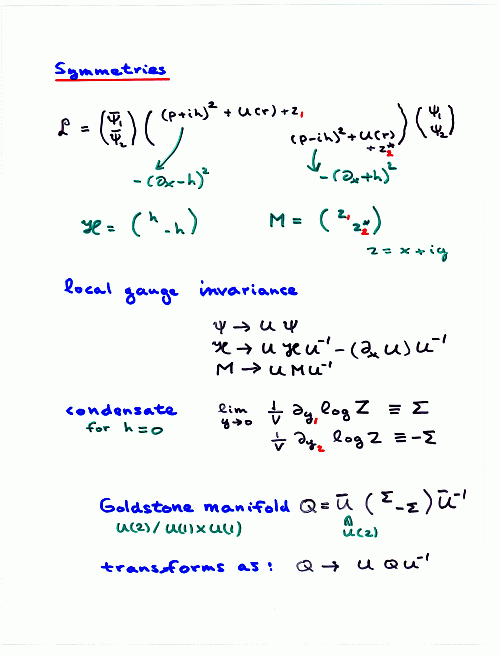 Symmetries
ℒ = (ψ̄₁ ψ̄₂) ( (p+ih)² + U(r) + z₁
(p-ih)² + U(r) + z₂* ) (ψ₁ ψ₂)
-(∂ₓ-h)² -(∂ₓ+h)²
ℋ = (h -h) M = (z₁ z₂*)
z = x + iy
local gauge invariance
ψ → U ψ
ℋ → U ℋ U⁻¹ - (∂ₓ U) U⁻¹
M → U M U⁻¹
condensate lim y→0 1/V ∂y₁ log Z ≡ Σ
for h=0 1/V ∂y₂ log Z ≡ -Σ
Goldstone manifold Q = Ū (Σ -Σ) Ū⁻¹
U(2)/U(1)×U(1) ∩ U(2)
transforms as: Q → U Q U⁻¹